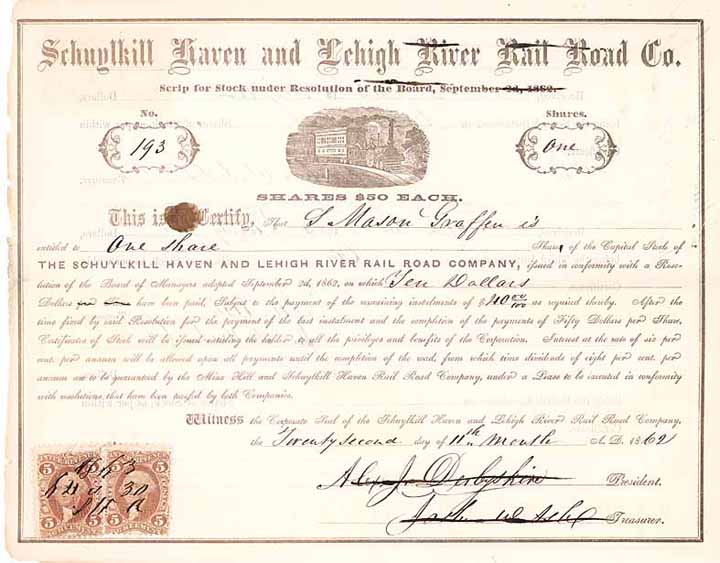 Schuylkill Haven and Lehigh River Rail Road Co.
Scrip for Stock under Resolution of the Board, September 2d, 1862.
No. Shares.
193 One
SHARES $50 EACH.
This is to Certify, that S Mason Graffen is
entitled to One share Shares of the Capital Stock of
THE SCHUYLKILL HAVEN AND LEHIGH RIVER RAIL ROAD COMPANY, issued in conformity with a Reso-
lution of the Board of Managers adopted September 2d, 1862, on which Ten Dollars
Dollars per share have been paid, Subject to the payment of the remaining instalments of $40 00/100 as required thereby. After the
time fixed by said Resolution for the payment of the last instalment and the completion of the payments of Fifty Dollars per Share,
Certificates of Stock will be issued entitling the holder to all the privileges and benefits of the Corporation. Interest at the rate of six per
cent. per annum will be allowed upon all payments until the completion of the road, from which time dividends of eight per cent. per
annum are to be guaranteed by the Mine Hill and Schuylkill Haven Rail Road Company, under a Lease to be executed in conformity
with resolutions, that have been passed by both Companies.
Witness the Corporate Seal of the Schuylkill Haven and Lehigh River Rail Road Company,
the Twenty second day of 11th Month A.D. 1862
Alex J Derbyshire President.
Treasurer.
5 5 5 5
5 5 5 5